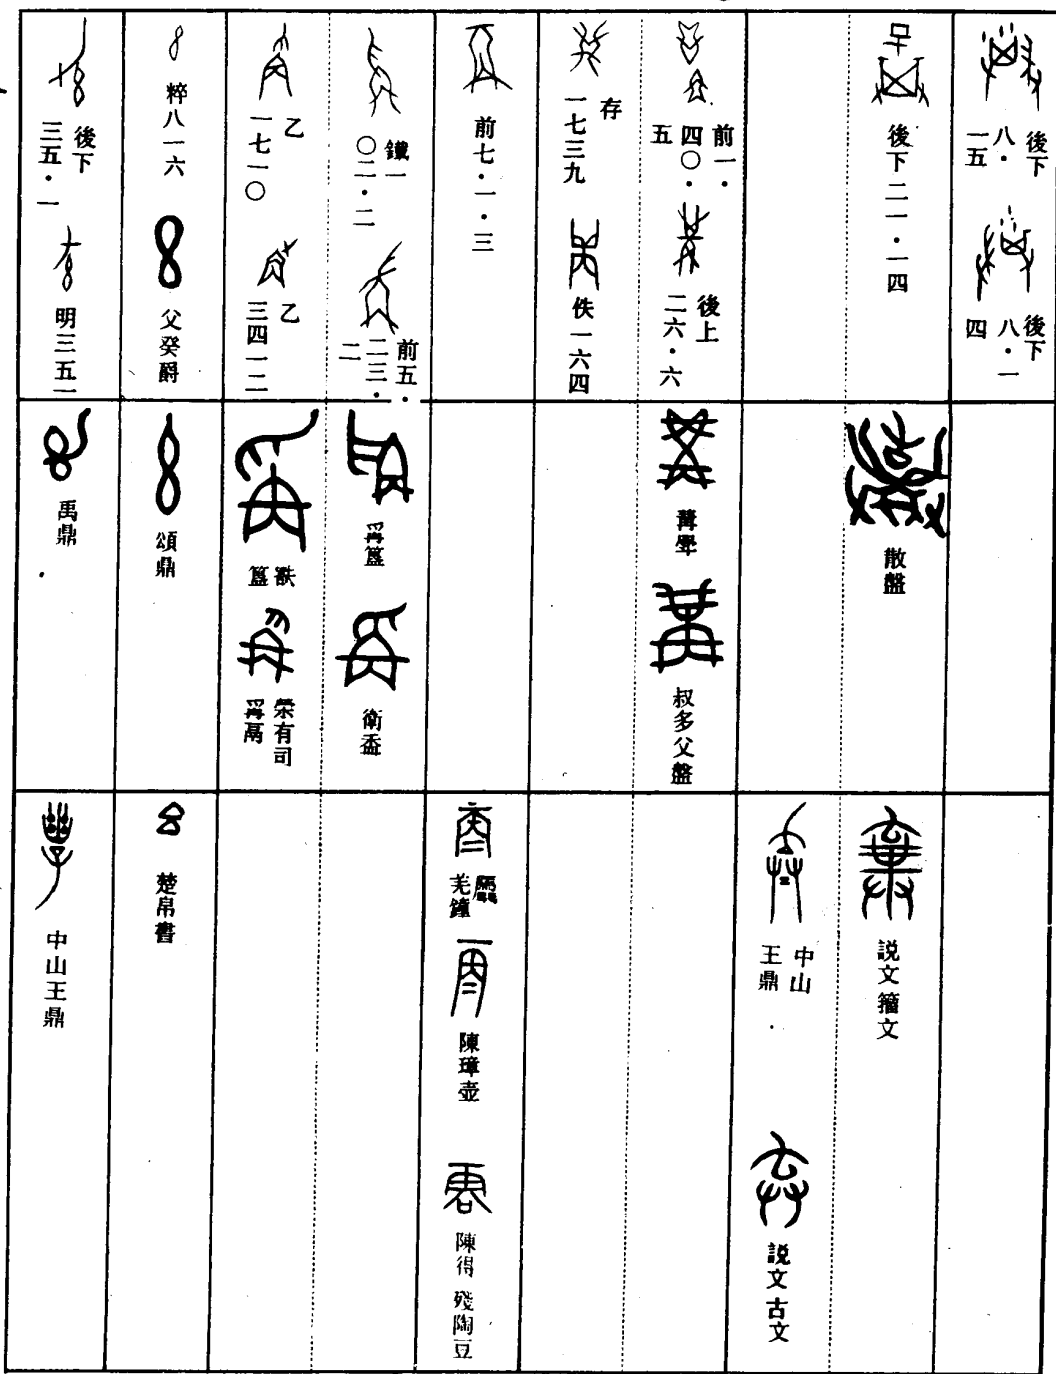 後下
八・
一五
後下
八・一
四
後下二一・一四
前一・
四〇・
五
後上
二六・六
存
一七三九
佚一六四
前七・一・三
鐵一
〇二・二
前五・
二三・
二
乙
一七一〇
乙
三四一二
粹八一六
父癸爵
後下
三五・一
明三五一
散盤
冓斝
叔多父盤
爯簋
衛盉
㝬
簋
榮有司
爯鬲
頌鼎
禹鼎
説文籀文
中山
王鼎
説文古文
羌鐘
陳璋壺
陳得殘陶豆
楚帛書
中山王鼎